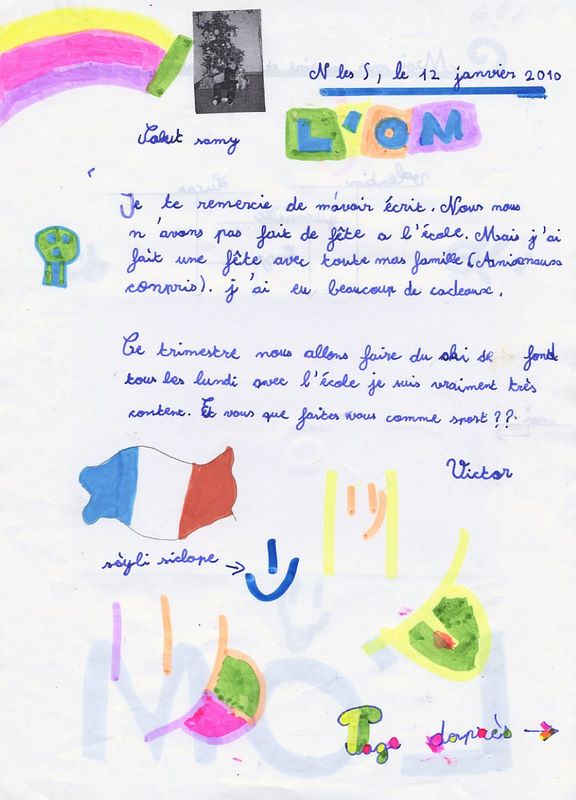 N les S, le 12 janvier 2010
L'OM
Salut samy
Je te remercie de m'avoir écrit. Nous nous
n'avons pas fait de fête a l'école. Mais j'ai
fait une fête avec toute mas famille (Animaux
compris). j'ai eu beaucoup de cadeaux.
Ce trimestre nous allons faire du ski de fond
tous les lundi avec l'école je suis vraiment très
content. Et vous que faites vous comme sport ??
Victor
sèyli siclope →
Page derpaès →